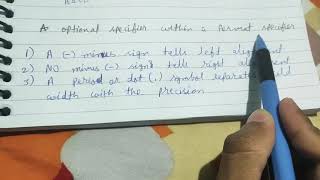 A optional specifier within a format specifier
1) A (-) minus sign tells left alignment
2) NO minus (-) sign tells right alignment
3) A period or dot (.) symbol separates
width with the precision